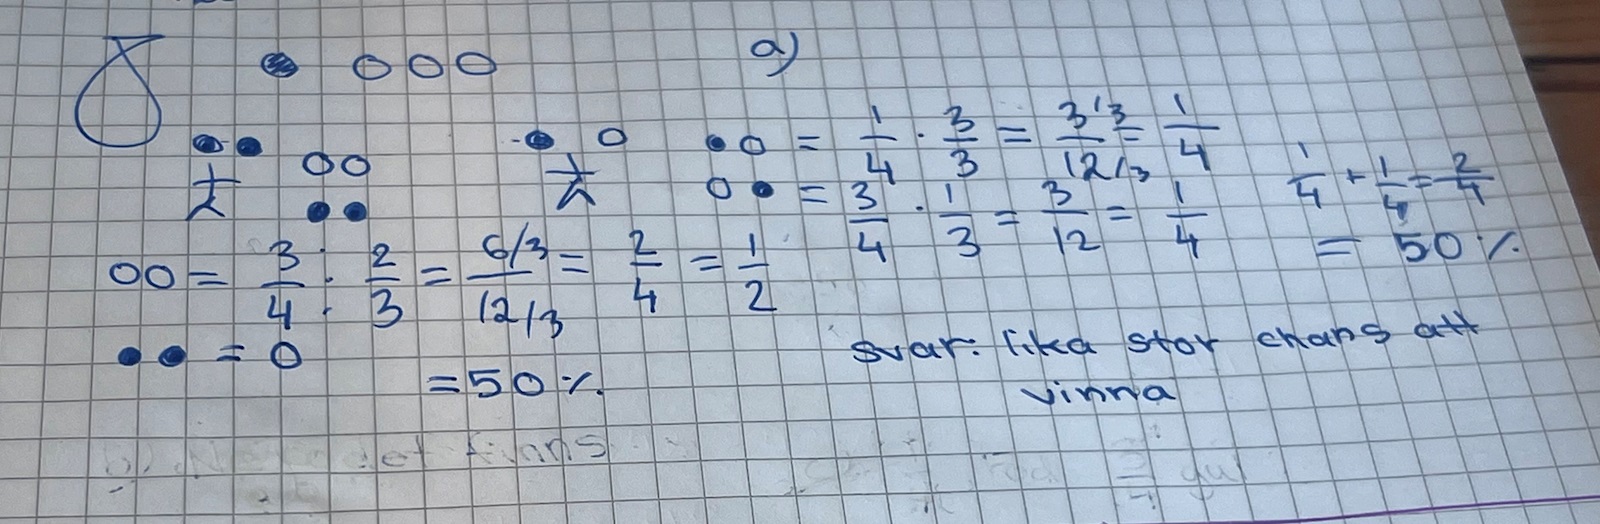 a)
●○ = 1/4 · 3/3 = 3/3/12/3 = 1/4
○● = 3/4 · 1/3 = 3/12 = 1/4
1/4 + 1/4 = 2/4
= 50 %
○○ = 3/4 · 2/3 = 6/3/12/3 = 2/4 = 1/2
●● = 0
= 50 %
svar: lika stor chans att
vinna
det finns